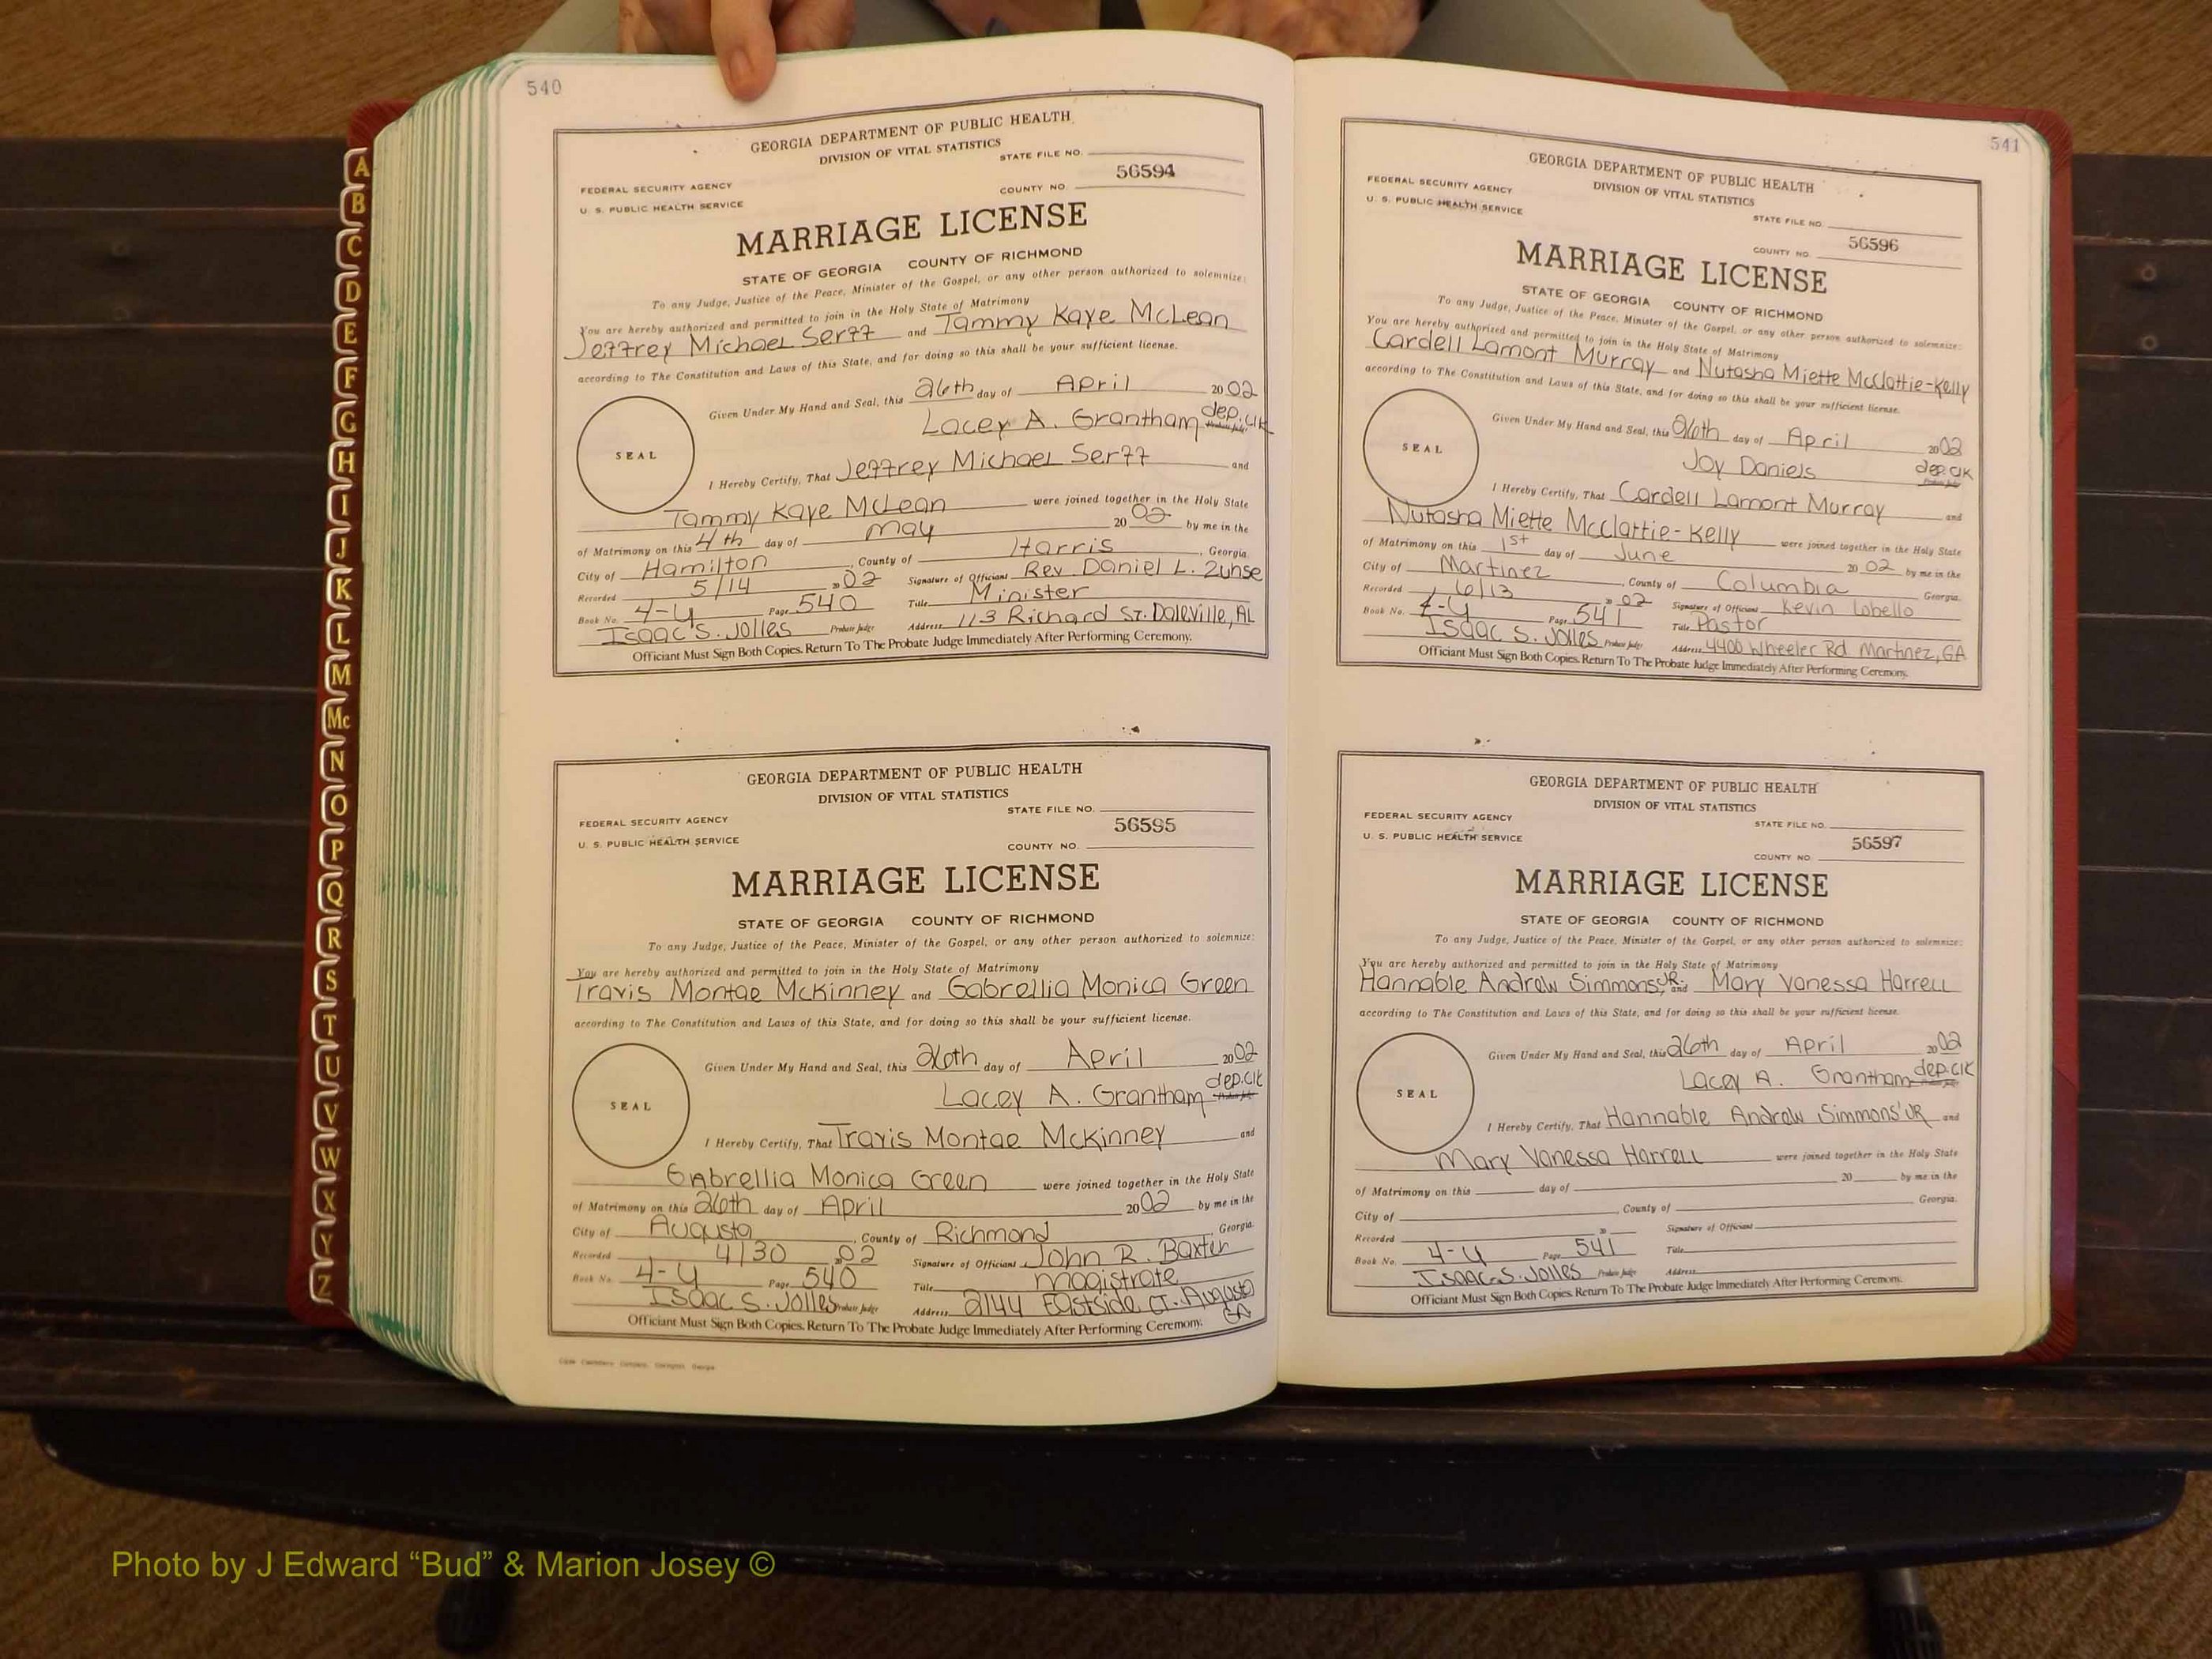 A
B
C
D
E
F
G
H
I
J
K
L
M
Mc
N
O
P
Q
R
S
T
U
V
W
X
Y
Z
540
GEORGIA DEPARTMENT OF PUBLIC HEALTH
DIVISION OF VITAL STATISTICS
STATE FILE NO.
FEDERAL SECURITY AGENCY
56594
U. S. PUBLIC HEALTH SERVICE
COUNTY NO.
MARRIAGE LICENSE
STATE OF GEORGIA COUNTY OF RICHMOND
To any Judge, Justice of the Peace, Minister of the Gospel, or any other person authorized to solemnize:
You are hereby authorized and permitted to join in the Holy State of Matrimony
Jeffrey Michael Serff and Tammy Kaye McLean
according to The Constitution and Laws of this State, and for doing so this shall be your sufficient license.
Given Under My Hand and Seal, this 26th day of April 2002
Lacey A. Grantham dep.clk
SEAL
I Hereby Certify, That Jeffrey Michael Serff and
Tammy Kaye McLean were joined together in the Holy State
of Matrimony on this 4th day of May 2002 by me in the
City of Hamilton, County of Harris, Georgia.
Recorded 5/14 2002 Signature of Officiant Rev. Daniel L. Zuhse
Book No. 4-U Page 540 Title Minister
Isaac S. Jolles Probate Judge Address 113 Richard St. Daleville, AL
Officiant Must Sign Both Copies. Return To The Probate Judge Immediately After Performing Ceremony.
GEORGIA DEPARTMENT OF PUBLIC HEALTH
DIVISION OF VITAL STATISTICS
STATE FILE NO.
FEDERAL SECURITY AGENCY
56595
U. S. PUBLIC HEALTH SERVICE
COUNTY NO.
MARRIAGE LICENSE
STATE OF GEORGIA COUNTY OF RICHMOND
To any Judge, Justice of the Peace, Minister of the Gospel, or any other person authorized to solemnize:
You are hereby authorized and permitted to join in the Holy State of Matrimony
Travis Montae McKinney and Gabrellia Monica Green
according to The Constitution and Laws of this State, and for doing so this shall be your sufficient license.
Given Under My Hand and Seal, this 26th day of April 2002
Lacey A. Grantham dep.clk
SEAL
I Hereby Certify, That Travis Montae McKinney and
Gabrellia Monica Green were joined together in the Holy State
of Matrimony on this 26th day of April 2002 by me in the
City of Augusta, County of Richmond Georgia.
Recorded 4/30 2002 Signature of Officiant John R. Baxter
Book No. 4-U Page 540 Title Magistrate
Isaac S. Jolles Probate Judge Address 2144 Eastside Ct. Augusta GA
Officiant Must Sign Both Copies. Return To The Probate Judge Immediately After Performing Ceremony.
541
GEORGIA DEPARTMENT OF PUBLIC HEALTH
DIVISION OF VITAL STATISTICS
FEDERAL SECURITY AGENCY
U. S. PUBLIC HEALTH SERVICE
STATE FILE NO.
56596
COUNTY NO.
MARRIAGE LICENSE
STATE OF GEORGIA COUNTY OF RICHMOND
To any Judge, Justice of the Peace, Minister of the Gospel, or any other person authorized to solemnize:
You are hereby authorized and permitted to join in the Holy State of Matrimony
Cardell Lamont Murray and Nutasha Miette McClattie-Kelly
according to The Constitution and Laws of this State, and for doing so this shall be your sufficient license.
Given Under My Hand and Seal, this 26th day of April 2002
Joy Daniels dep.clk
SEAL
I Hereby Certify, That Cardell Lamont Murray and
Nutasha Miette McClattie-Kelly were joined together in the Holy State
of Matrimony on this 1st day of June 2002 by me in the
City of Martinez, County of Columbia Georgia.
Recorded 6/13 2002 Signature of Officiant Kevin Lobello
Book No. 4-U Page 541 Title Pastor
Isaac S. Jolles Probate Judge Address 4400 Wheeler Rd. Martinez, GA
Officiant Must Sign Both Copies. Return To The Probate Judge Immediately After Performing Ceremony.
GEORGIA DEPARTMENT OF PUBLIC HEALTH
DIVISION OF VITAL STATISTICS
FEDERAL SECURITY AGENCY
STATE FILE NO.
U. S. PUBLIC HEALTH SERVICE
56597
COUNTY NO.
MARRIAGE LICENSE
STATE OF GEORGIA COUNTY OF RICHMOND
To any Judge, Justice of the Peace, Minister of the Gospel, or any other person authorized to solemnize:
You are hereby authorized and permitted to join in the Holy State of Matrimony
Hannable Andrew Simmons, JR. and Mary Vanessa Harrell
according to The Constitution and Laws of this State, and for doing so this shall be your sufficient license.
Given Under My Hand and Seal, this 26th day of April 2002
Lacey A. Grantham dep.clk
SEAL
I Hereby Certify, That Hannable Andrew Simmons' JR and
Mary Vanessa Harrell were joined together in the Holy State
of Matrimony on this day of 20 by me in the
City of , County of Georgia.
Recorded 20 Signature of Officiant
Book No. 4-U Page 541 Title
Isaac S. Jolles Probate Judge Address
Officiant Must Sign Both Copies. Return To The Probate Judge Immediately After Performing Ceremony.
Photo by J Edward “Bud” & Marion Josey ©